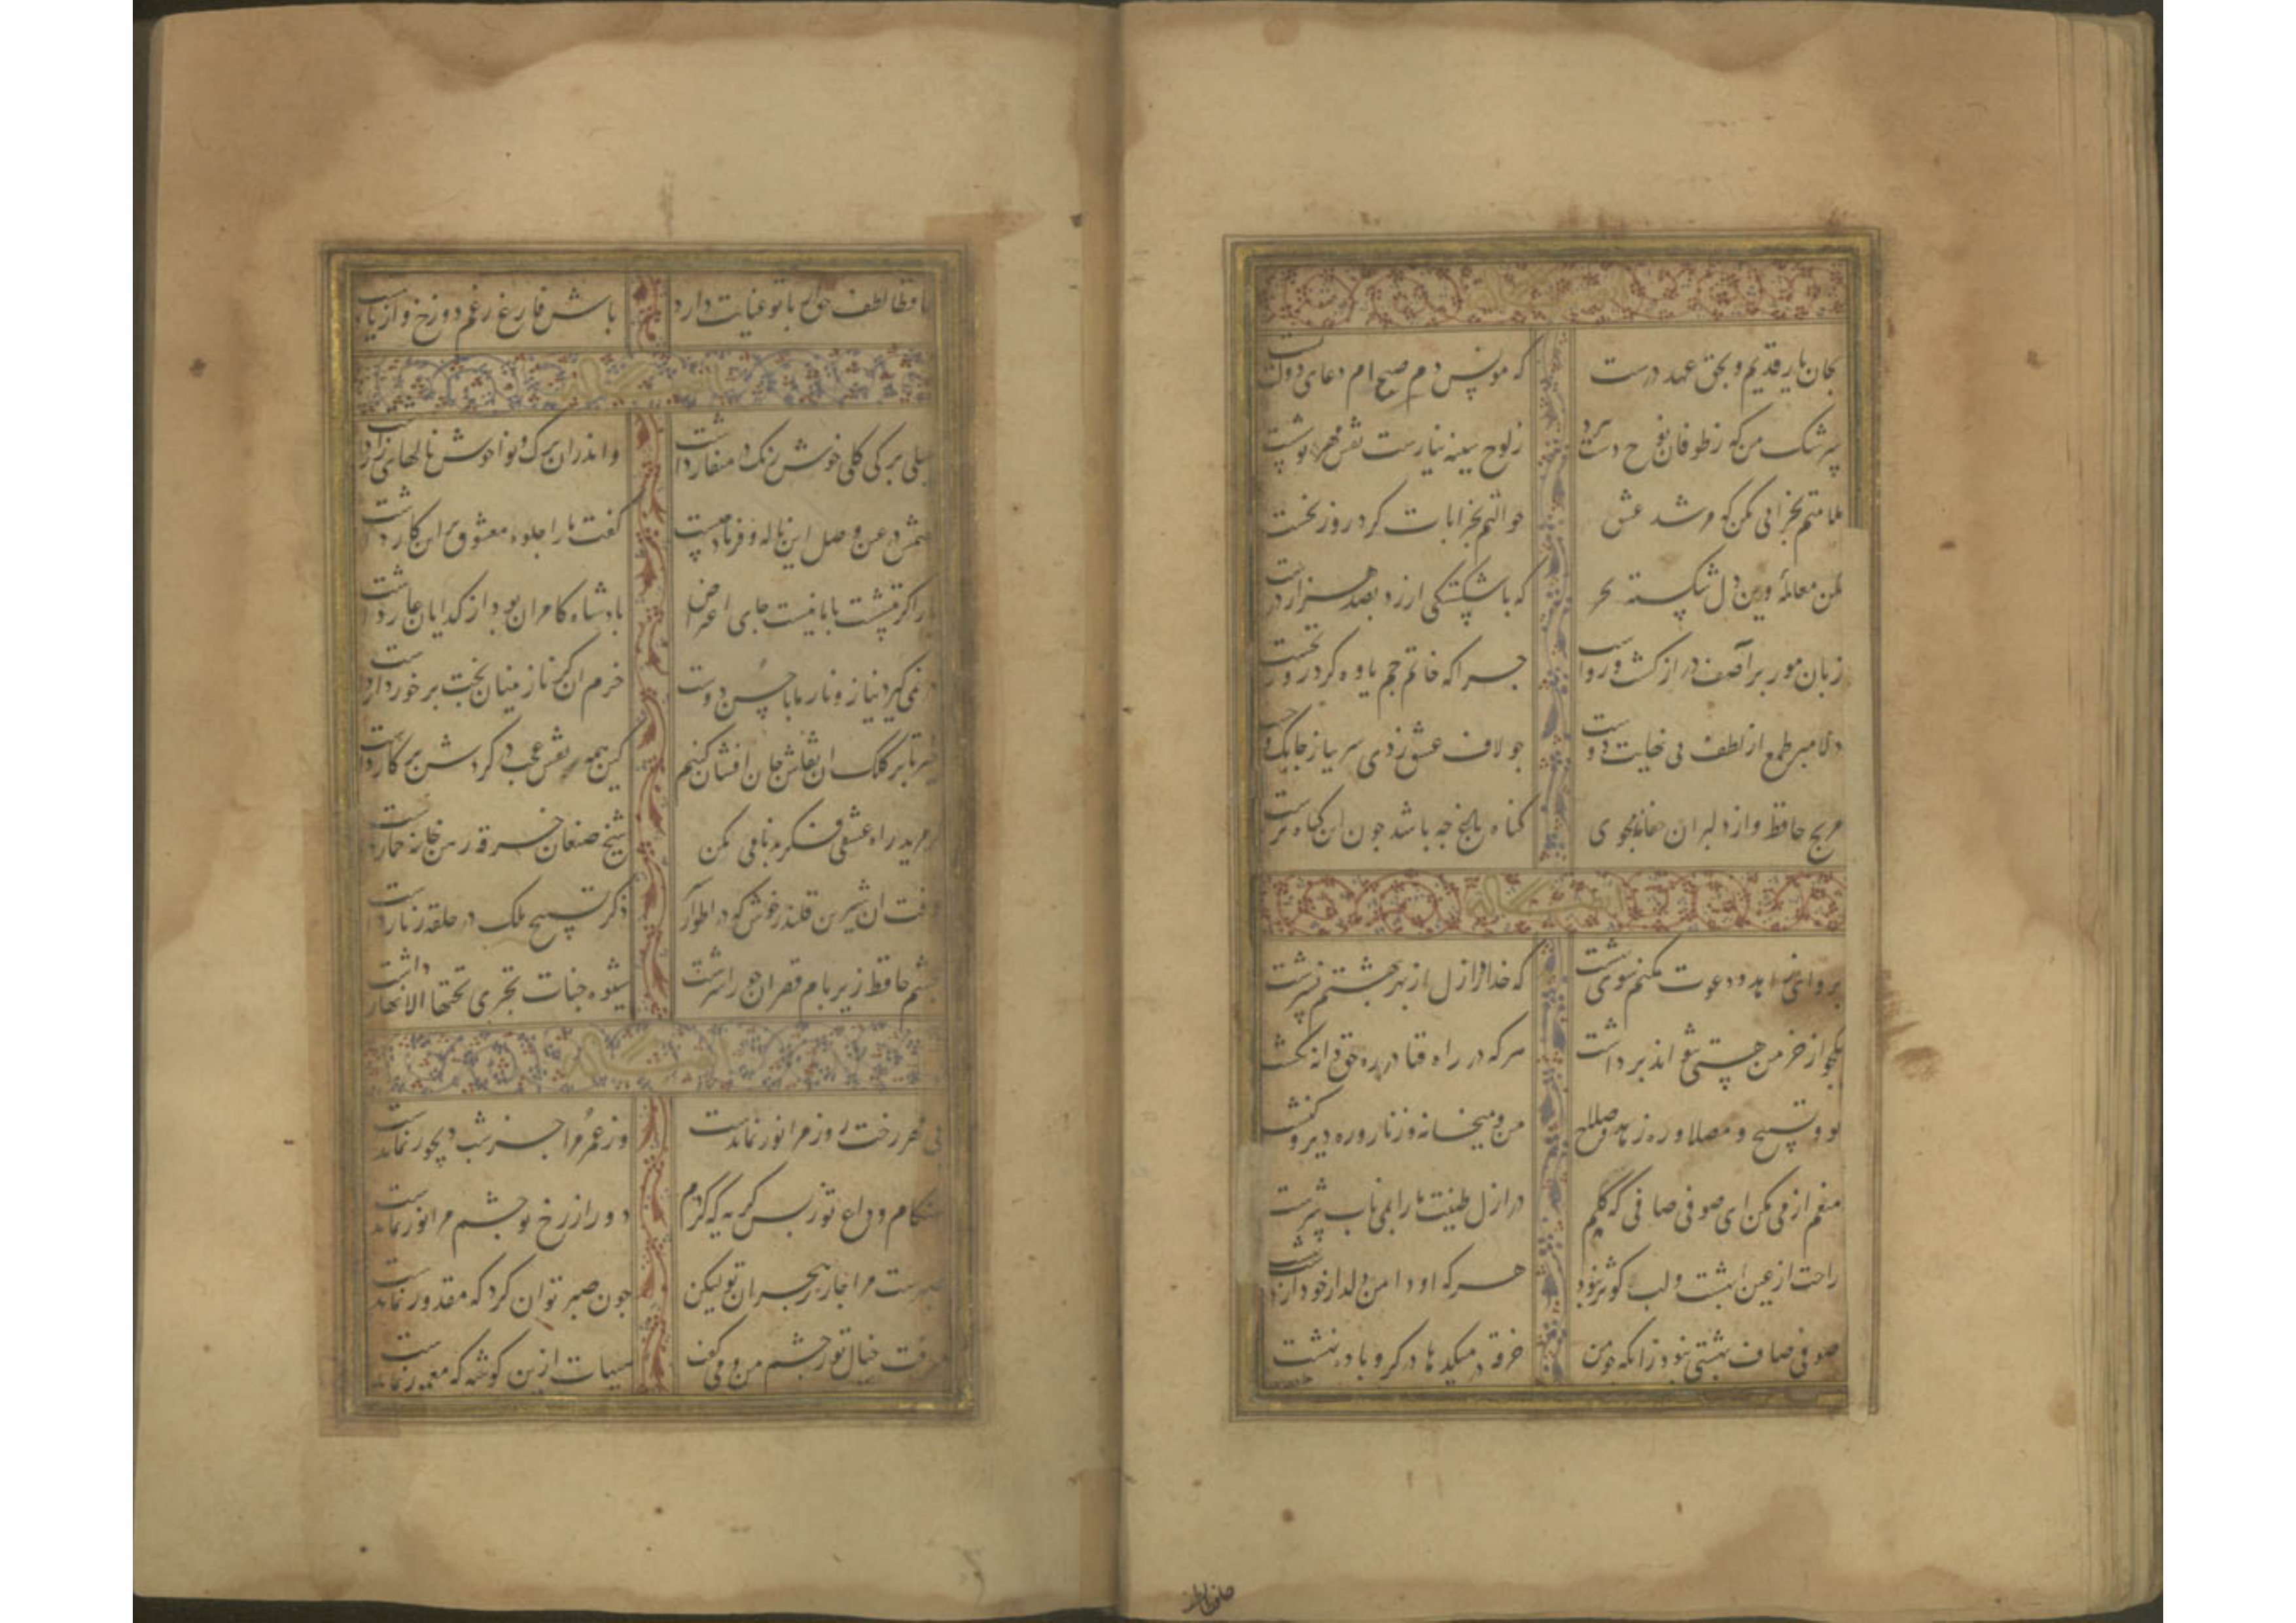 بجان یار قدیم و بحق عهد درست که مونس دم صبح ام دعای دولت تست
سرشک من که ز طوفان نوح دست برد ز لوح سینه نیارست نقش مهر تو شست
ملامتم بخرابی مکن که مرشد عشق حوالتم بخرابات کرد روز نخست
بکن معامله وین دل شکسته بخر که باشکستگی ارزد بصد هزار درست
زبان مور بر آصف دراز گشت و رواست چرا که خاتم جم یاوه کرد و باز نجست
دلا مبر طمع از لطف بی نهایت دوست جو لاف عشق زدی سر بباز چابک و چست
مرنج حافظ و از دلبران حفاظ مجوی گناه باغ چه باشد جون این گیاه نرست
برو ای زاهد و دعوت مکنم سوی بهشت که خدا در ازل از بهر بهشتم نسرشت
یکجو از خرمن هستی نتواند برداشت هر که در راه فنا در ره حق دانه نکشت
تو و تسبیح و مصلا و ره زهد و صلاح من و میخانه و زنار و ره دیر و کنشت
منعم از می مکن ای صوفی صافی که حکیم در ازل طینت ما را بمی ناب سرشت
راحت از عین بهشت و لب کوثر نبود هر که او دامن دلدار خود از دست بهشت
صوفی صاف بهشتی نبود زانکه چو من خرقه در میکدها در گرو باده نهشت
حافظا لطف حق ار با تو عنایت دارد باش فارغ ز غم دوزخ و از ناز بهشت
بلبلی برگ گلی خوش رنگ در منقار داشت و اندران برگ و نوا خوش نالهای زار داشت
گفتمش در عین وصل این ناله و فریاد چیست گفت ما را جلوه معشوق بر این کار داشت
یار اگر ننشست با ما نیست جای اعتراض پادشاه کامران بود از گدایان عار داشت
در نمی گیرد نیاز و ناز ما با حسن دوست خرم ان کز نازنینان بخت برخوردار داشت
خیز تا بر کلک ان نقاش جان افشان کنیم کین همه نقش عجب در گردش پرگار داشت
گر مرید راه عشقی فکر بدنامی مکن شیخ صنعان خرقه رهن خانه خمار داشت
وقت ان شیرین قلندر خوش که در اطوار ذکر تسبیح ملک در حلقه زنار داشت
چشم حافظ زیر بام قصر ان حوری سرشت شیوه جنات تجری تحتها الانهار داشت
بی مهر رخت روز مرا نور نماندست وز عمر مرا جز شب دیجور نماندست
هنگام وداع تو ز بس گریه که کردم دور از رخ تو چشم مرا نور نماندست
صبرست مرا چاره ز هجران تو لیکن جون صبر توان کرد که مقدور نماندست
میرفت خیال تو ز چشم من و می گفت هیهات ازین گوشه که معمور نماندست